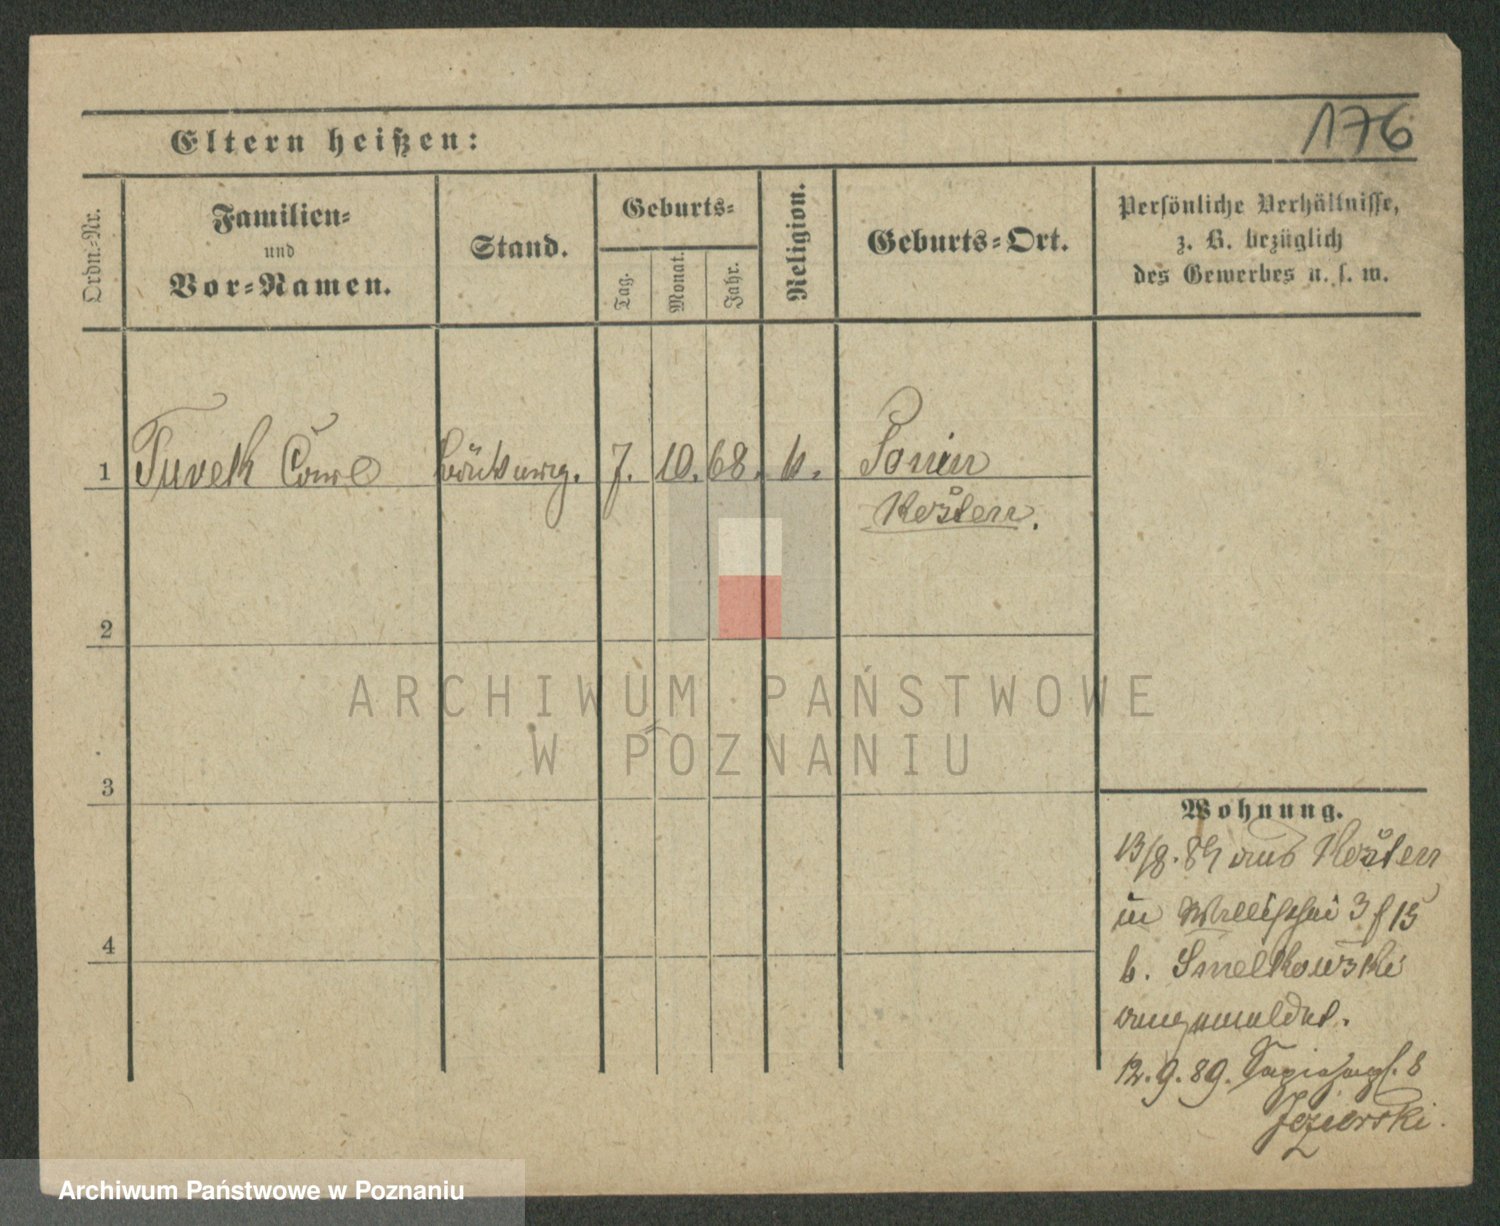 176
Eltern heißen:
Ordn.-Nr.
Familien-
und
Vor-Namen.
Stand.
Geburts-
Tag.
Monat.
Jahr.
Religion.
Geburts-Ort.
Persönliche Verhältnisse,
z. B. bezüglich
des Gewerbes u. s. w.
1
Turek Carl
7. 10. 68. k.
Ponin
Kosten.
2
3
4
Wohnung.
13/8. 89 aus Kosten
in Wallischei 3 f 15
b. Smelkowski
angemeldet.
12. 9. 89. 8
Jezierski.
ARCHIWUM PAŃSTWOWE
W POZNANIU
Archiwum Państwowe w Poznaniu